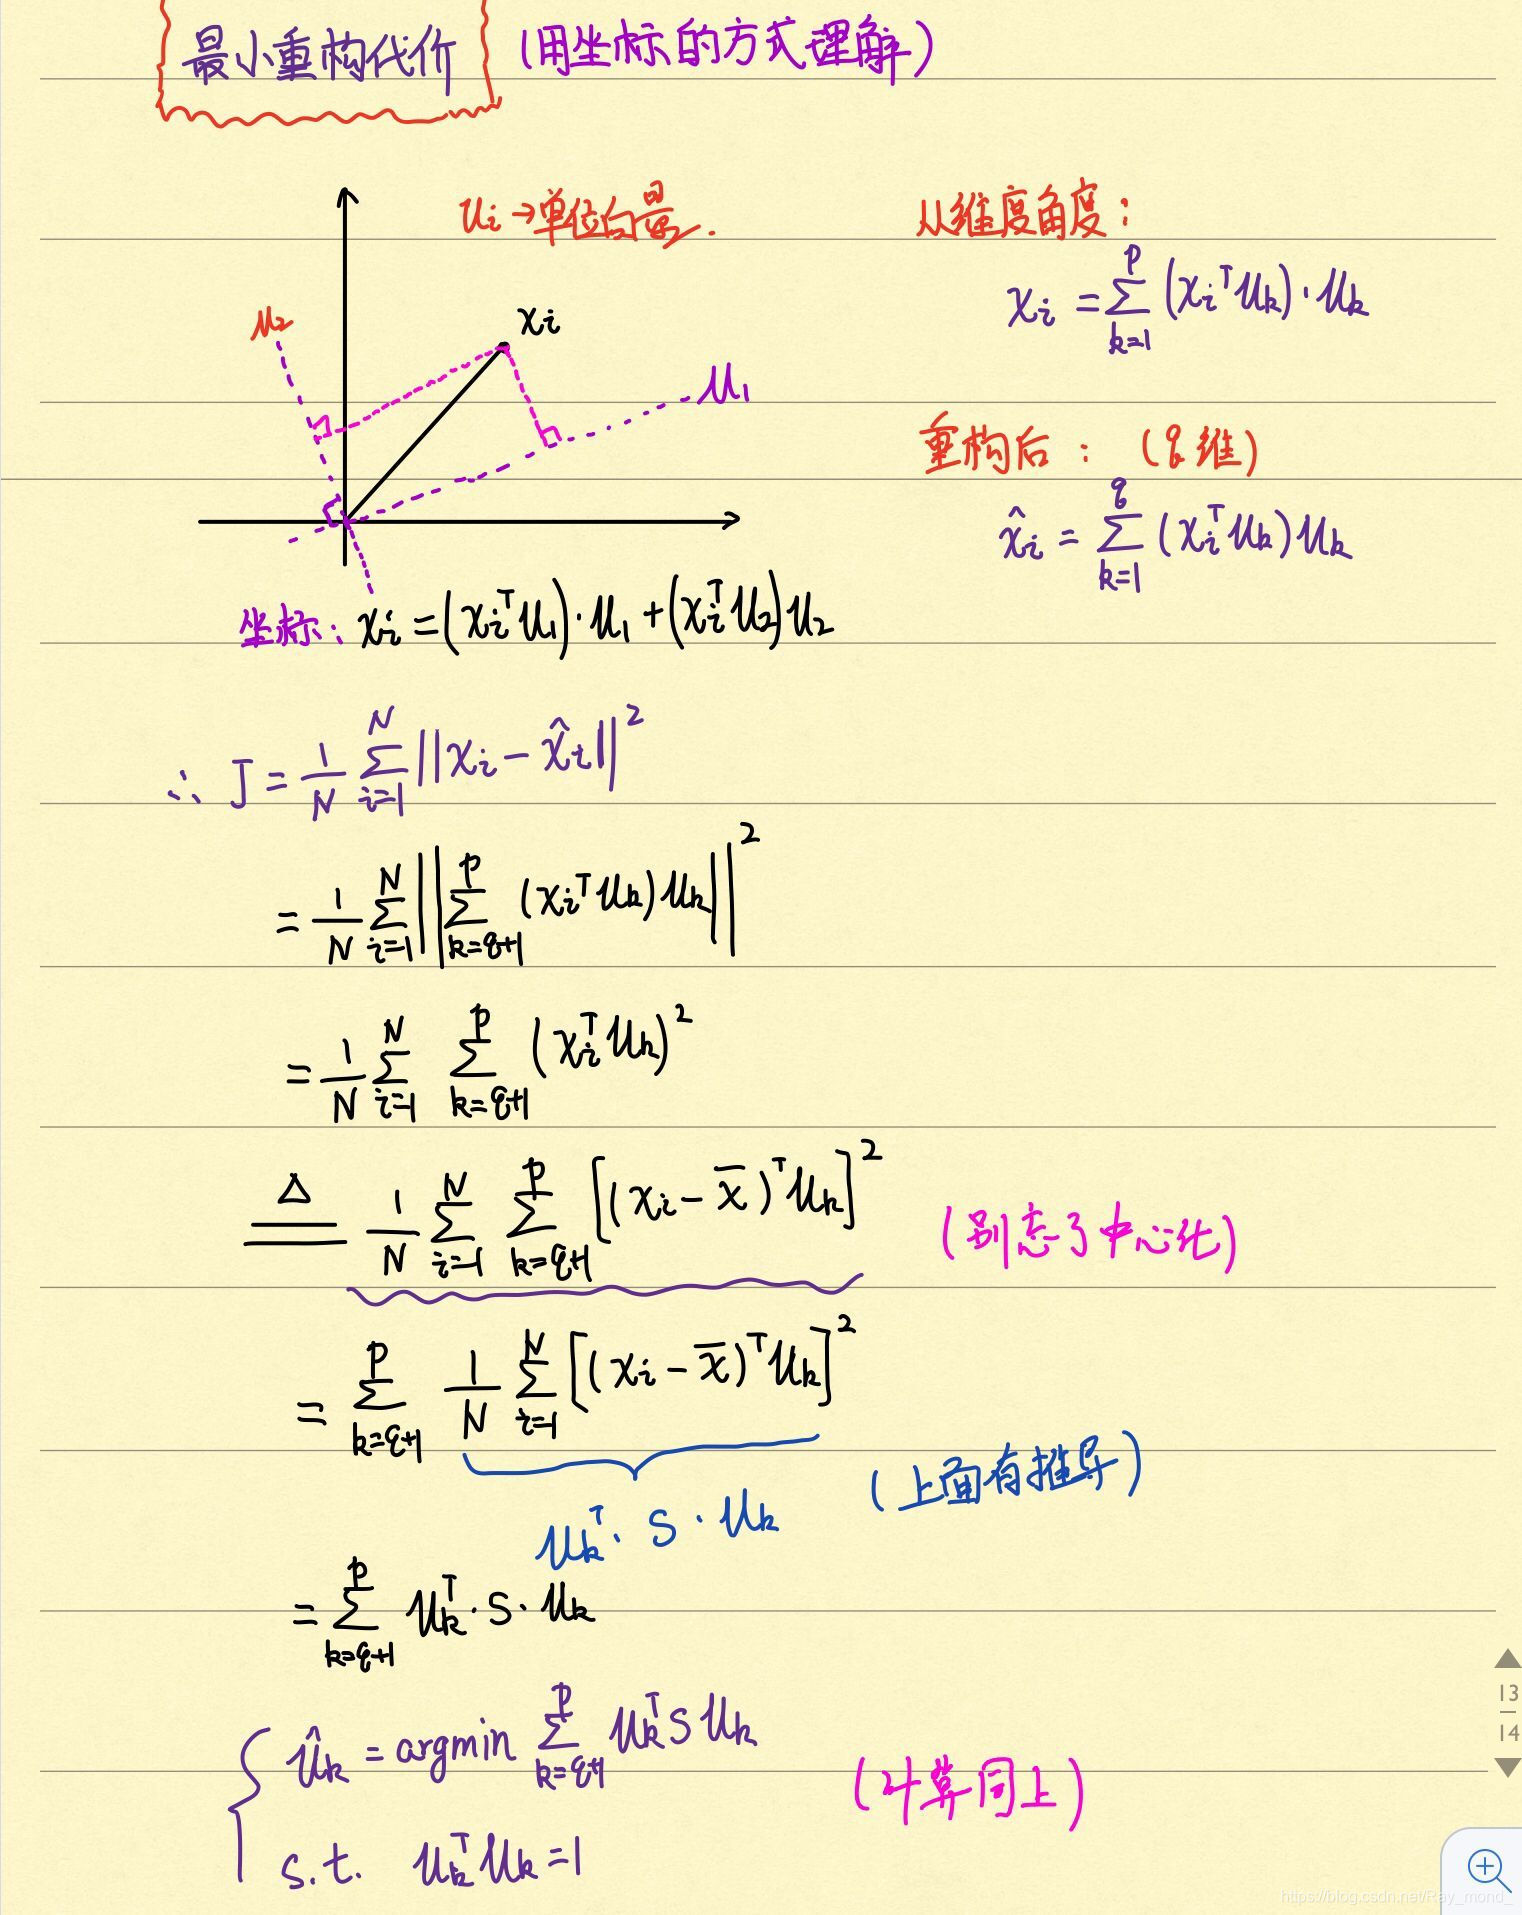 最小重构代价 (用坐标的方式理解)
u_i → 单位向量.
从维度角度:
x_i = \sum_{k=1}^{p} (x_i^T u_k) · u_k
u_2
x_i
u_1
重构后: (q维)
\hat{x}_i = \sum_{k=1}^{q} (x_i^T u_k) u_k
坐标: x_i = (x_i^T u_1) · u_1 + (x_i^T u_2) u_2
∴ J = \frac{1}{N} \sum_{i=1}^{N} ||x_i - \hat{x}_i||^2
= \frac{1}{N} \sum_{i=1}^{N} || \sum_{k=q+1}^{p} (x_i^T u_k) u_k ||^2
= \frac{1}{N} \sum_{i=1}^{N} \sum_{k=q+1}^{p} (x_i^T u_k)^2
\overset{Δ}{=} \frac{1}{N} \sum_{i=1}^{N} \sum_{k=q+1}^{p} [(x_i - \bar{x})^T u_k]^2 (别忘了中心化)
= \sum_{k=q+1}^{p} \frac{1}{N} \sum_{i=1}^{N} [(x_i - \bar{x})^T u_k]^2
u_k^T · S · u_k (上面有推导)
= \sum_{k=q+1}^{p} u_k^T · S · u_k
\hat{u}_k = argmin \sum_{k=q+1}^{p} u_k^T S u_k
(计算同上)
s.t. u_k^T u_k = 1
13
14
https://blog.csdn.net/Ray_mond_